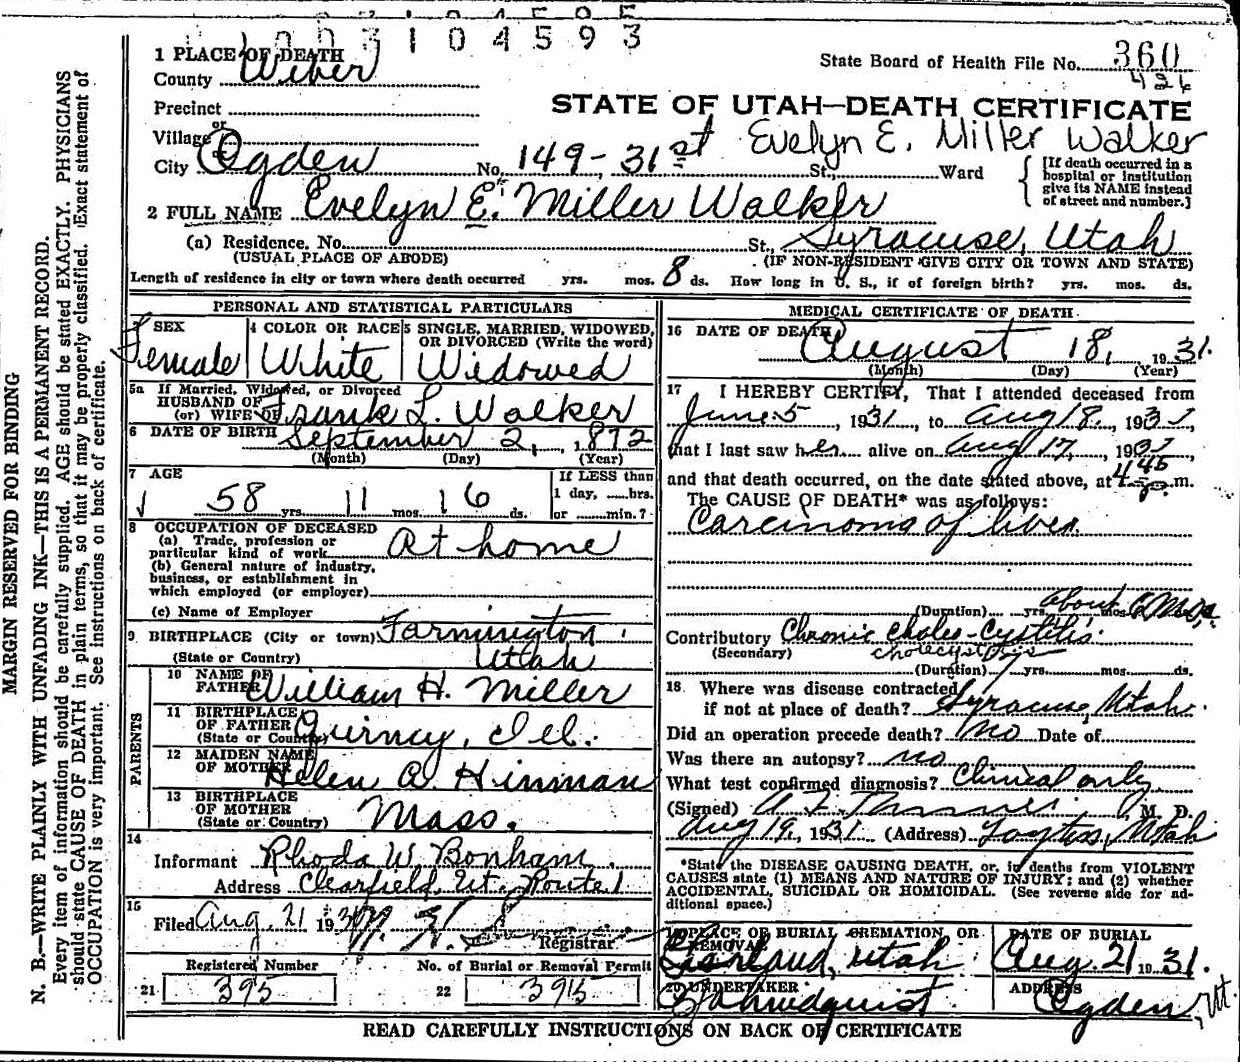 1003104593
1 PLACE OF DEATH
County Weber
State Board of Health File No. 360
426
Precinct
STATE OF UTAH—DEATH CERTIFICATE
or
Village
Evelyn E. Miller Walker
City Ogden No. 149 - 31st St., Ward
[If death occurred in a
hospital or institution
give its NAME instead
of street and number.]
2 FULL NAME Evelyn E. Miller Walker
(a) Residence, No. St., Syracuse, Utah
(USUAL PLACE OF ABODE) (IF NON-RESIDENT GIVE CITY OR TOWN AND STATE)
Length of residence in city or town where death occurred yrs. mos. 8 ds. How long in U. S., if of foreign birth? yrs. mos. ds.
PERSONAL AND STATISTICAL PARTICULARS
3 SEX Female
4 COLOR OR RACE White
5 SINGLE, MARRIED, WIDOWED, OR DIVORCED (Write the word) Widowed
5a If Married, Widowed, or Divorced
HUSBAND OF
(or) WIFE OF Frank L. Walker
6 DATE OF BIRTH September 2, 1872
(Month) (Day) (Year)
7 AGE
58 yrs. 11 mos. 16 ds.
If LESS than
1 day, hrs.
or min.?
8 OCCUPATION OF DECEASED
(a) Trade, profession or
particular kind of work At home
(b) General nature of industry,
business, or establishment in
which employed (or employer)
(c) Name of Employer
9 BIRTHPLACE (City or town) Farmington
(State or Country) Utah
PARENTS
10 NAME OF
FATHER William H. Miller
11 BIRTHPLACE
OF FATHER
(State or Country) Quincy, Ill.
12 MAIDEN NAME
OF MOTHER Helen A. Hinman
13 BIRTHPLACE
OF MOTHER
(State or Country) Mass.
14
Informant Rhoda W. Bonham
Address Clearfield, Ut. Route 1
15
Filed Aug. 21 193
Registrar
Registered Number
21 395
No. of Burial or Removal Permit
22 395
MEDICAL CERTIFICATE OF DEATH
16 DATE OF DEATH
August 18, 1931.
(Month) (Day) (Year)
17 I HEREBY CERTIFY, That I attended deceased from
June 5, 1931, to Aug 18, 1931,
that I last saw her alive on Aug 17, 1931
and that death occurred, on the date stated above, at 4 45 p. m.
The CAUSE OF DEATH* was as follows:
Carcinoma of liver.
(Duration) yrs. about 6 mos. ds.
Contributory Chronic Chole-Cystitis.
(Secondary) cholecystitis
(Duration) yrs. mos. ds.
18 Where was disease contracted
if not at place of death? Syracuse, Utah.
Did an operation precede death? No Date of
Was there an autopsy? no
What test confirmed diagnosis? Clinical only
(Signed) M. D.
Aug 19, 1931 (Address) Layton, Utah
*State the DISEASE CAUSING DEATH, or, in deaths from VIOLENT
CAUSES state (1) MEANS AND NATURE OF INJURY; and (2) whether
ACCIDENTAL, SUICIDAL OR HOMICIDAL. (See reverse side for ad-
ditional space.)
19 PLACE OF BURIAL, CREMATION, OR
REMOVAL
Garland, Utah
DATE OF BURIAL
Aug. 21 1931.
20 UNDERTAKER
ADDRESS
Ogden, Ut.
READ CAREFULLY INSTRUCTIONS ON BACK OF CERTIFICATE
MARGIN RESERVED FOR BINDING
N. B.—WRITE PLAINLY WITH UNFADING INK—THIS IS A PERMANENT RECORD.
Every item of information should be carefully supplied. AGE should be stated EXACTLY. PHYSICIANS
should state CAUSE OF DEATH in plain terms, so that it may be properly classified. Exact statement of
OCCUPATION is very important. See instructions on back of certificate.